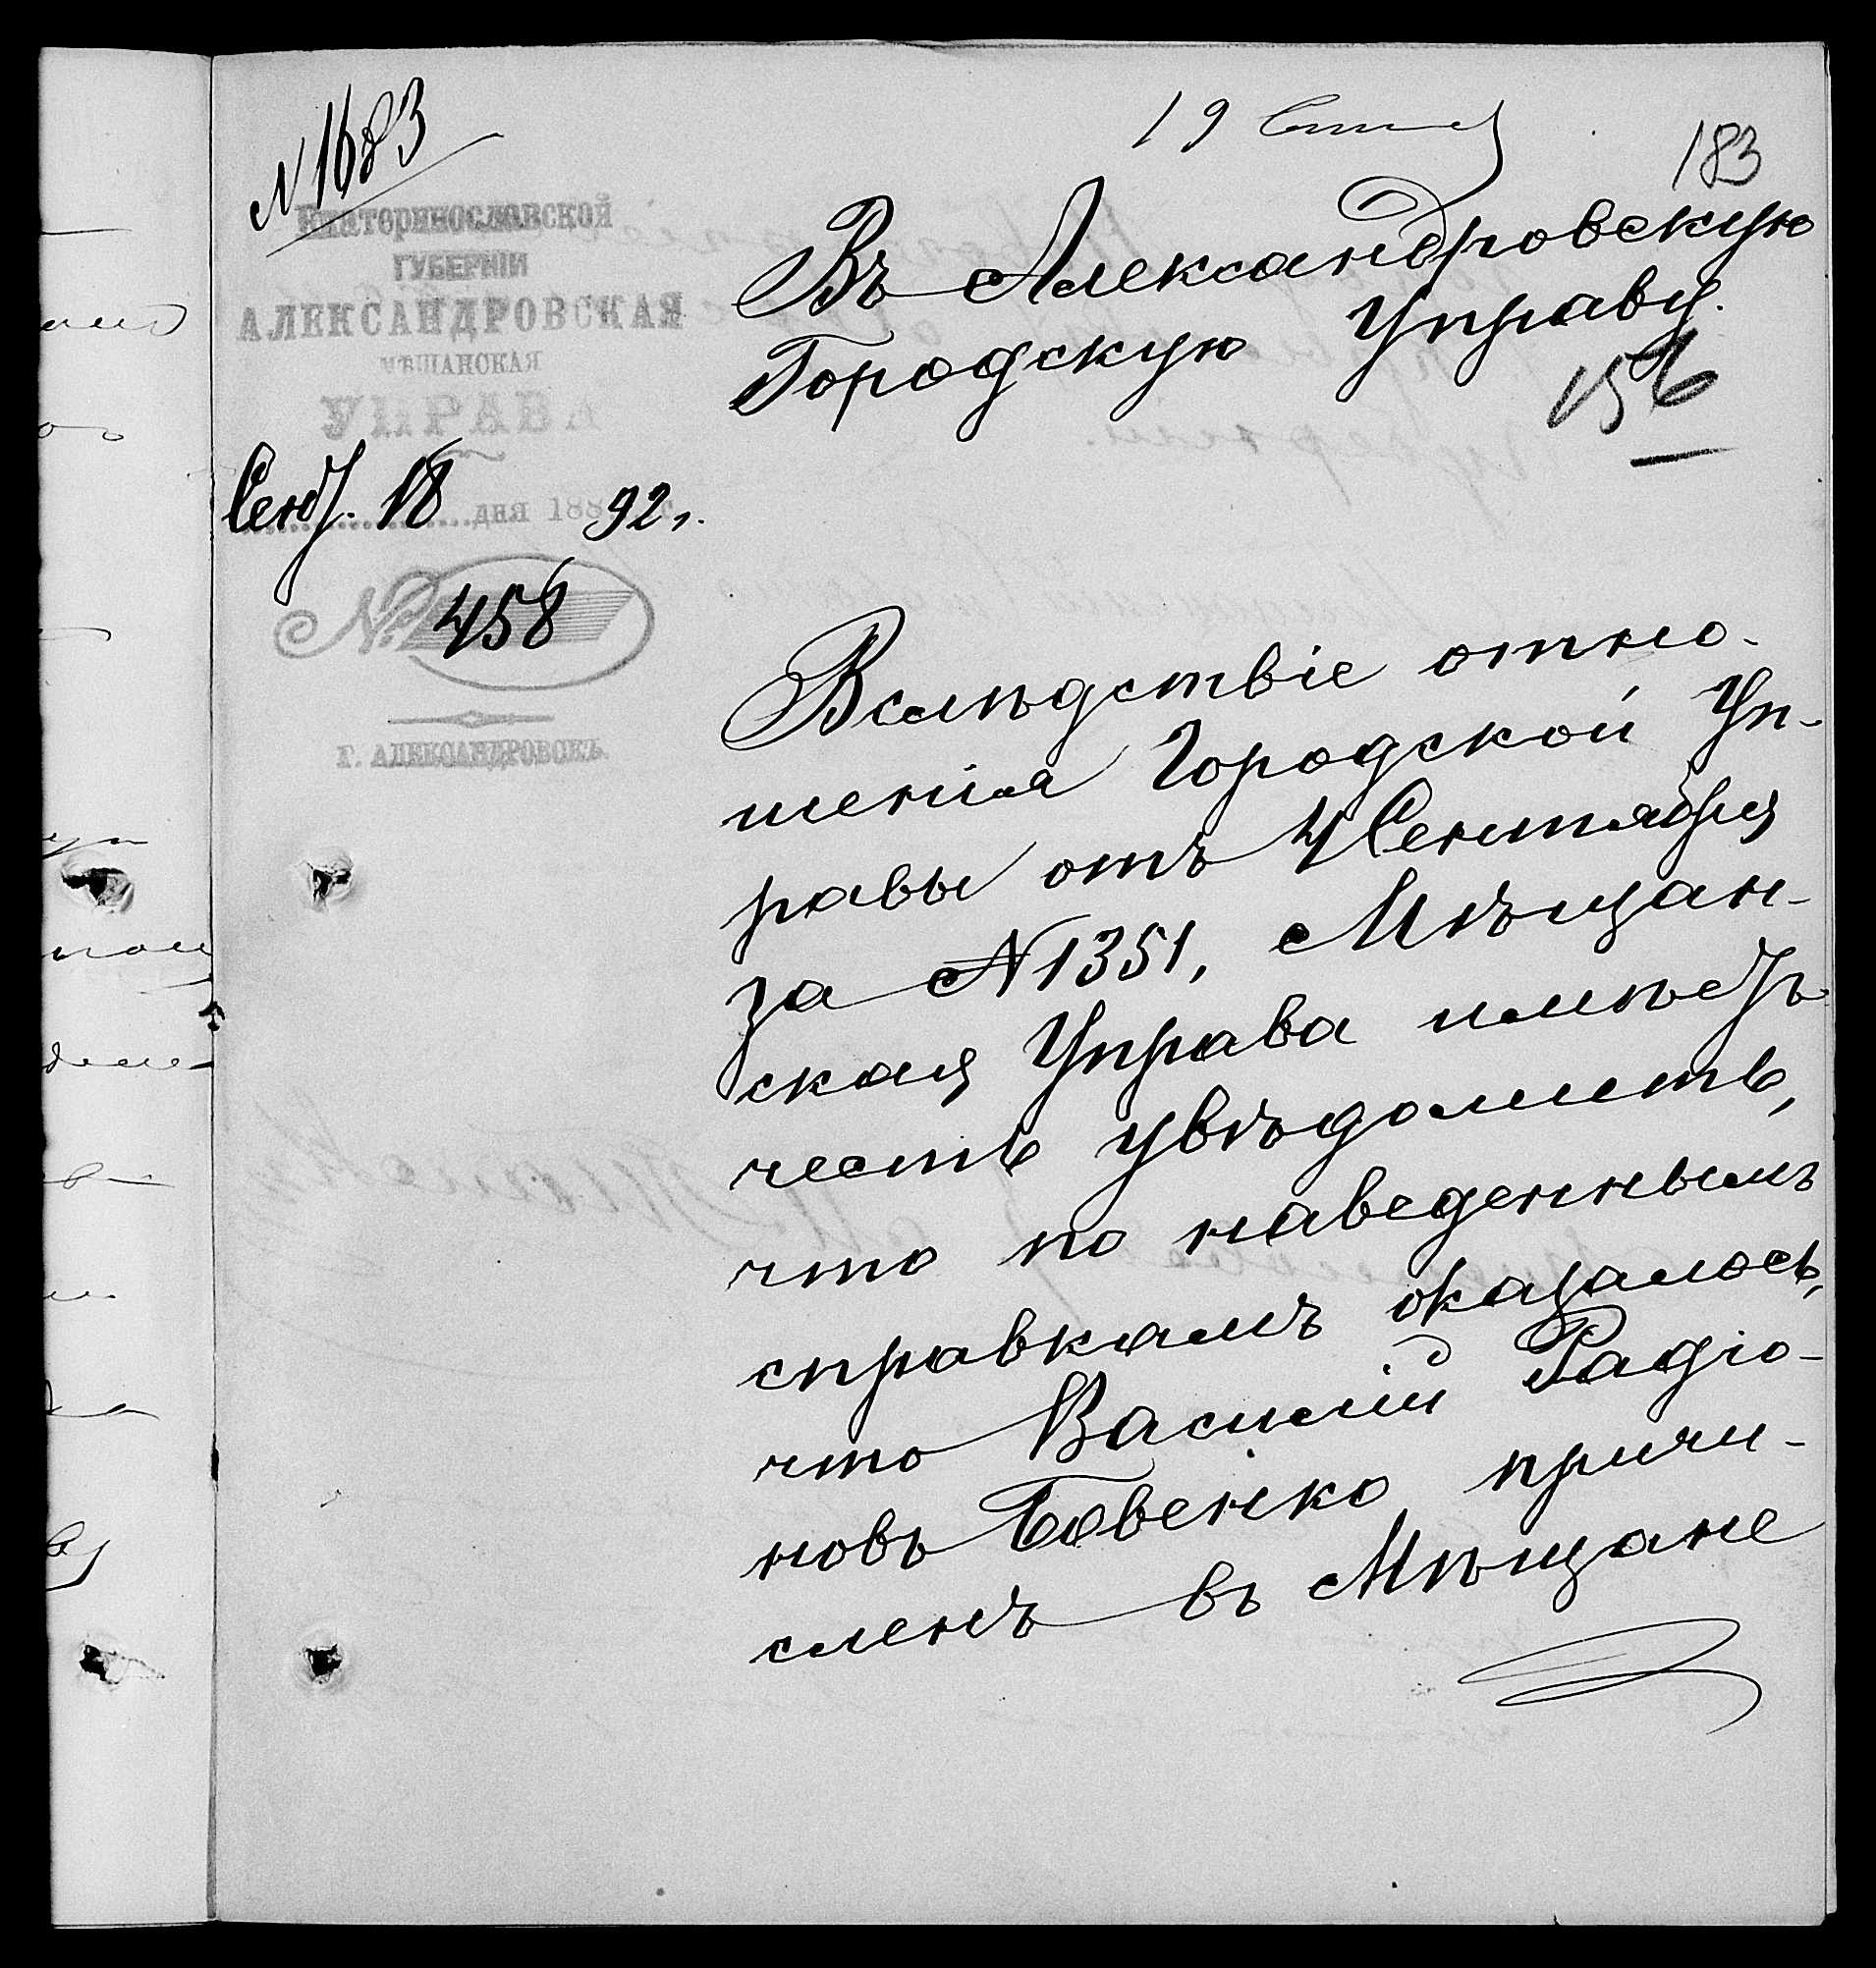 № 1683
19 Сент
183
Екатеринославской
ГУБЕРНІИ
АЛЕКСАНДРОВСКАЯ
МѢЩАНСКАЯ
УПРАВА
Сент. 18 дня 188 92 г.
№ 458
Г. АЛЕКСАНДРОВСКЪ.
Въ Александровскую
Городскую Управу.
156
Вслѣдствіе отно-
шенія Городской Уп-
равы отъ 4 Сентября
за № 1351, Мѣщан-
ская Управа имѣетъ
честь увѣдомить,
что по наведеннымъ
справкамъ оказалось,
что Василій Радіо-
новъ Бовенко причи-
сленъ въ Мѣщане